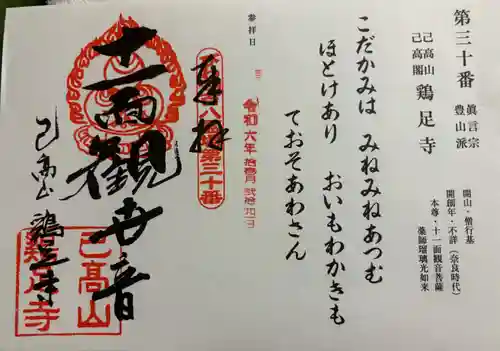 第三十番
眞言宗
豊山派
己高山
己高閣
鶏足寺
開山・僧行基
開創年・不詳（奈良時代）
本尊・十一面観音菩薩
薬師瑠璃光如来
こだかみは みねみねあつむ
ほとけあり おいもわかきも
ておそあわさん
参拝日
令和六年拾壱月
奉拝
第三十番
十一面観世音
己高山 鶏足寺
己高山
鶏足寺